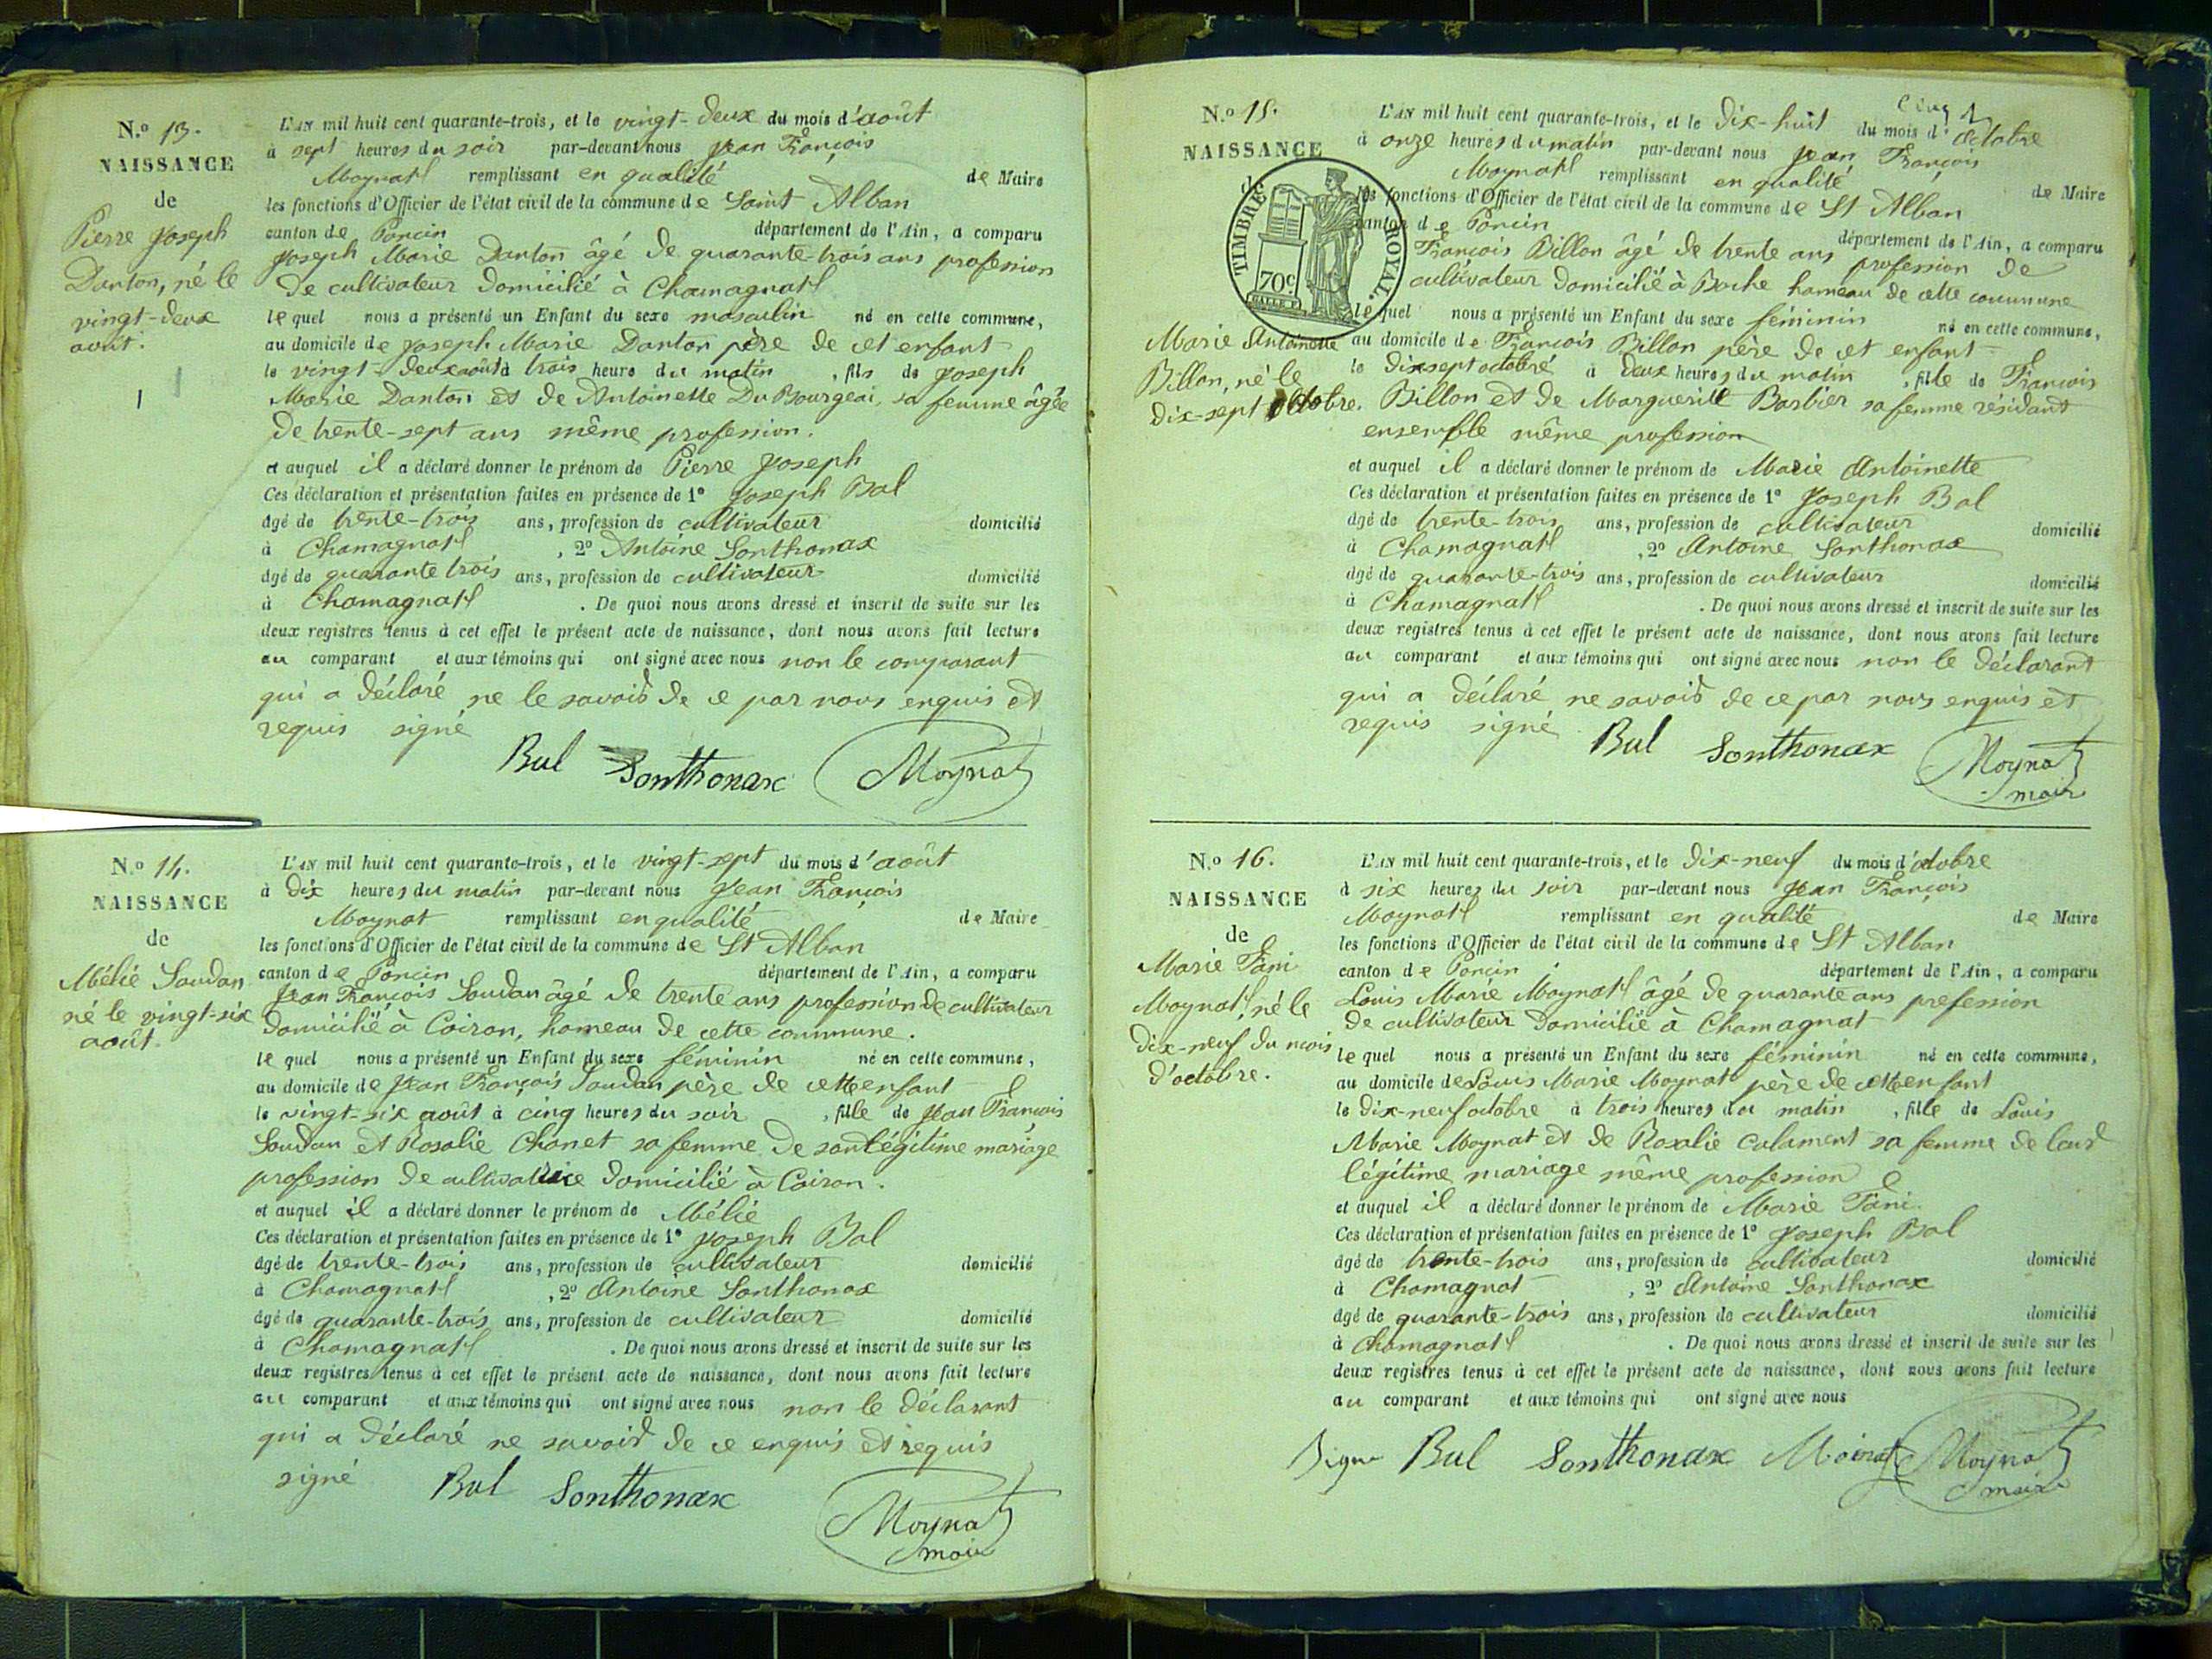 N.º 13.
NAISSANCE
de
Pierre Joseph
Danton, né le
vingt-deux
août.
L'AN mil huit cent quarante-trois, et le vingt-deux du mois d'août
à sept heures du soir par-devant nous Jean François
Moynat remplissant en qualité de Maire
les fonctions d'Officier de l'état civil de la commune de Saint Alban
canton de Poncin département de l'Ain, a comparu
Joseph Marie Danton âgé de quarante-trois ans profession
de cultivateur domicilié à Chamagnat
lequel nous a présenté un Enfant du sexe masculin né en cette commune,
au domicile de Joseph Marie Danton père de cet enfant
le vingt-deux août à trois heure du matin, fils de Joseph
Marie Danton et de Antoinette Du Bourgeai, sa femme âgée
de trente-sept ans même profession.
et auquel il a déclaré donner le prénom de Pierre Joseph
Ces déclaration et présentation faites en présence de 1º Joseph Bal
âgé de trente-trois ans, profession de cultivateur domicilié
à Chamagnat, 2º Antoine Sonthonax
âgé de quarante trois ans, profession de cultivateur domicilié
à Chamagnat. De quoi nous avons dressé et inscrit de suite sur les
deux registres tenus à cet effet le présent acte de naissance, dont nous avons fait lecture
au comparant et aux témoins qui ont signé avec nous non le comparant
qui a déclaré ne le savoir de ce par nous enquis et
requis signé
Bal Sonthonax Moynat
N.º 14.
NAISSANCE
de
Mélié Soudan
né le vingt-six
août.
L'AN mil huit cent quarante-trois, et le vingt-sept du mois d'août
à dix heures du matin par-devant nous Jean François
Moynat remplissant en qualité de Maire
les fonctions d'Officier de l'état civil de la commune de St Alban
canton de Poncin département de l'Ain, a comparu
Jean François Soudan âgé de trente ans profession de cultivateur
domicilié à Coiron, hameau de cette commune.
lequel nous a présenté un Enfant du sexe féminin né en cette commune,
au domicile de Jean François Soudan père de cette enfant
le vingt-six août à cinq heures du soir, fille de Jean François
Soudan et Rosalie Chanet sa femme de son légitime mariage
profession de cultivatrice domicilié à Coiron.
et auquel il a déclaré donner le prénom de Mélié
Ces déclaration et présentation faites en présence de 1º Joseph Bal
âgé de trente-trois ans, profession de cultivateur domicilié
à Chamagnat, 2º Antoine Sonthonax
âgé de quarante-trois ans, profession de cultivateur domicilié
à Chamagnat. De quoi nous avons dressé et inscrit de suite sur les
deux registres tenus à cet effet le présent acte de naissance, dont nous avons fait lecture
au comparant et aux témoins qui ont signé avec nous non le déclarant
qui a déclaré ne savoir de ce enquis et requis
signé Bal Sonthonax Moynat
maire
N.º 15.
NAISSANCE
de
TIMBRE ROYAL.
70c
Marie Antoinette
Billon, né le
dix-sept octobre.
L'AN mil huit cent quarante-trois, et le dix-huit du mois d'octobre
à onze heures du matin par-devant nous Jean François
Moynat remplissant en qualité de Maire
les fonctions d'Officier de l'état civil de la commune de St Alban
canton de Poncin département de l'Ain, a comparu
François Billon âgé de trente ans profession de
cultivateur domicilié à Boche hameau de cette commune
lequel nous a présenté un Enfant du sexe féminin né en cette commune,
au domicile de François Billon père de cet enfant
le dix sept octobre à deux heures du matin, fille de François
Billon et de Marguerite Barbier sa femme résidant
ensemble même profession
et auquel il a déclaré donner le prénom de Marie Antoinette
Ces déclaration et présentation faites en présence de 1º Joseph Bal
âgé de trente-trois ans, profession de cultivateur domicilié
à Chamagnat, 2º Antoine Sonthonax
âgé de quarante-trois ans, profession de cultivateur domicilié
à Chamagnat. De quoi nous avons dressé et inscrit de suite sur les
deux registres tenus à cet effet le présent acte de naissance, dont nous avons fait lecture
au comparant et aux témoins qui ont signé avec nous non le déclarant
qui a déclaré ne savoir de ce par nous enquis et
requis signé Bal Sonthonax Moynat
maire
N.º 16.
NAISSANCE
de
Marie Fani
Moynat, né le
dix-neuf du mois
d'octobre.
L'AN mil huit cent quarante-trois, et le dix-neuf du mois d'octobre
à six heures du soir par-devant nous Jean François
Moynat remplissant en qualité de Maire
les fonctions d'Officier de l'état civil de la commune de St Alban
canton de Poncin département de l'Ain, a comparu
Louis Marie Moynat âgé de quarante ans profession
de cultivateur domicilié à Chamagnat
lequel nous a présenté un Enfant du sexe féminin né en cette commune,
au domicile de Louis Marie Moynat père de cette enfant
le dix-neuf octobre à trois heures du matin, fille de Louis
Marie Moynat et de Rosalie Calament sa femme de leur
légitime mariage même profession
et auquel il a déclaré donner le prénom de Marie Fani.
Ces déclaration et présentation faites en présence de 1º Joseph Bal
âgé de trente-trois ans, profession de cultivateur domicilié
à Chamagnat, 2º Antoine Sonthonax
âgé de quarante-trois ans, profession de cultivateur domicilié
à Chamagnat. De quoi nous avons dressé et inscrit de suite sur les
deux registres tenus à cet effet le présent acte de naissance, dont nous avons fait lecture
au comparant et aux témoins qui ont signé avec nous
Signé Bal Sonthonax Moinat Moynat
maire